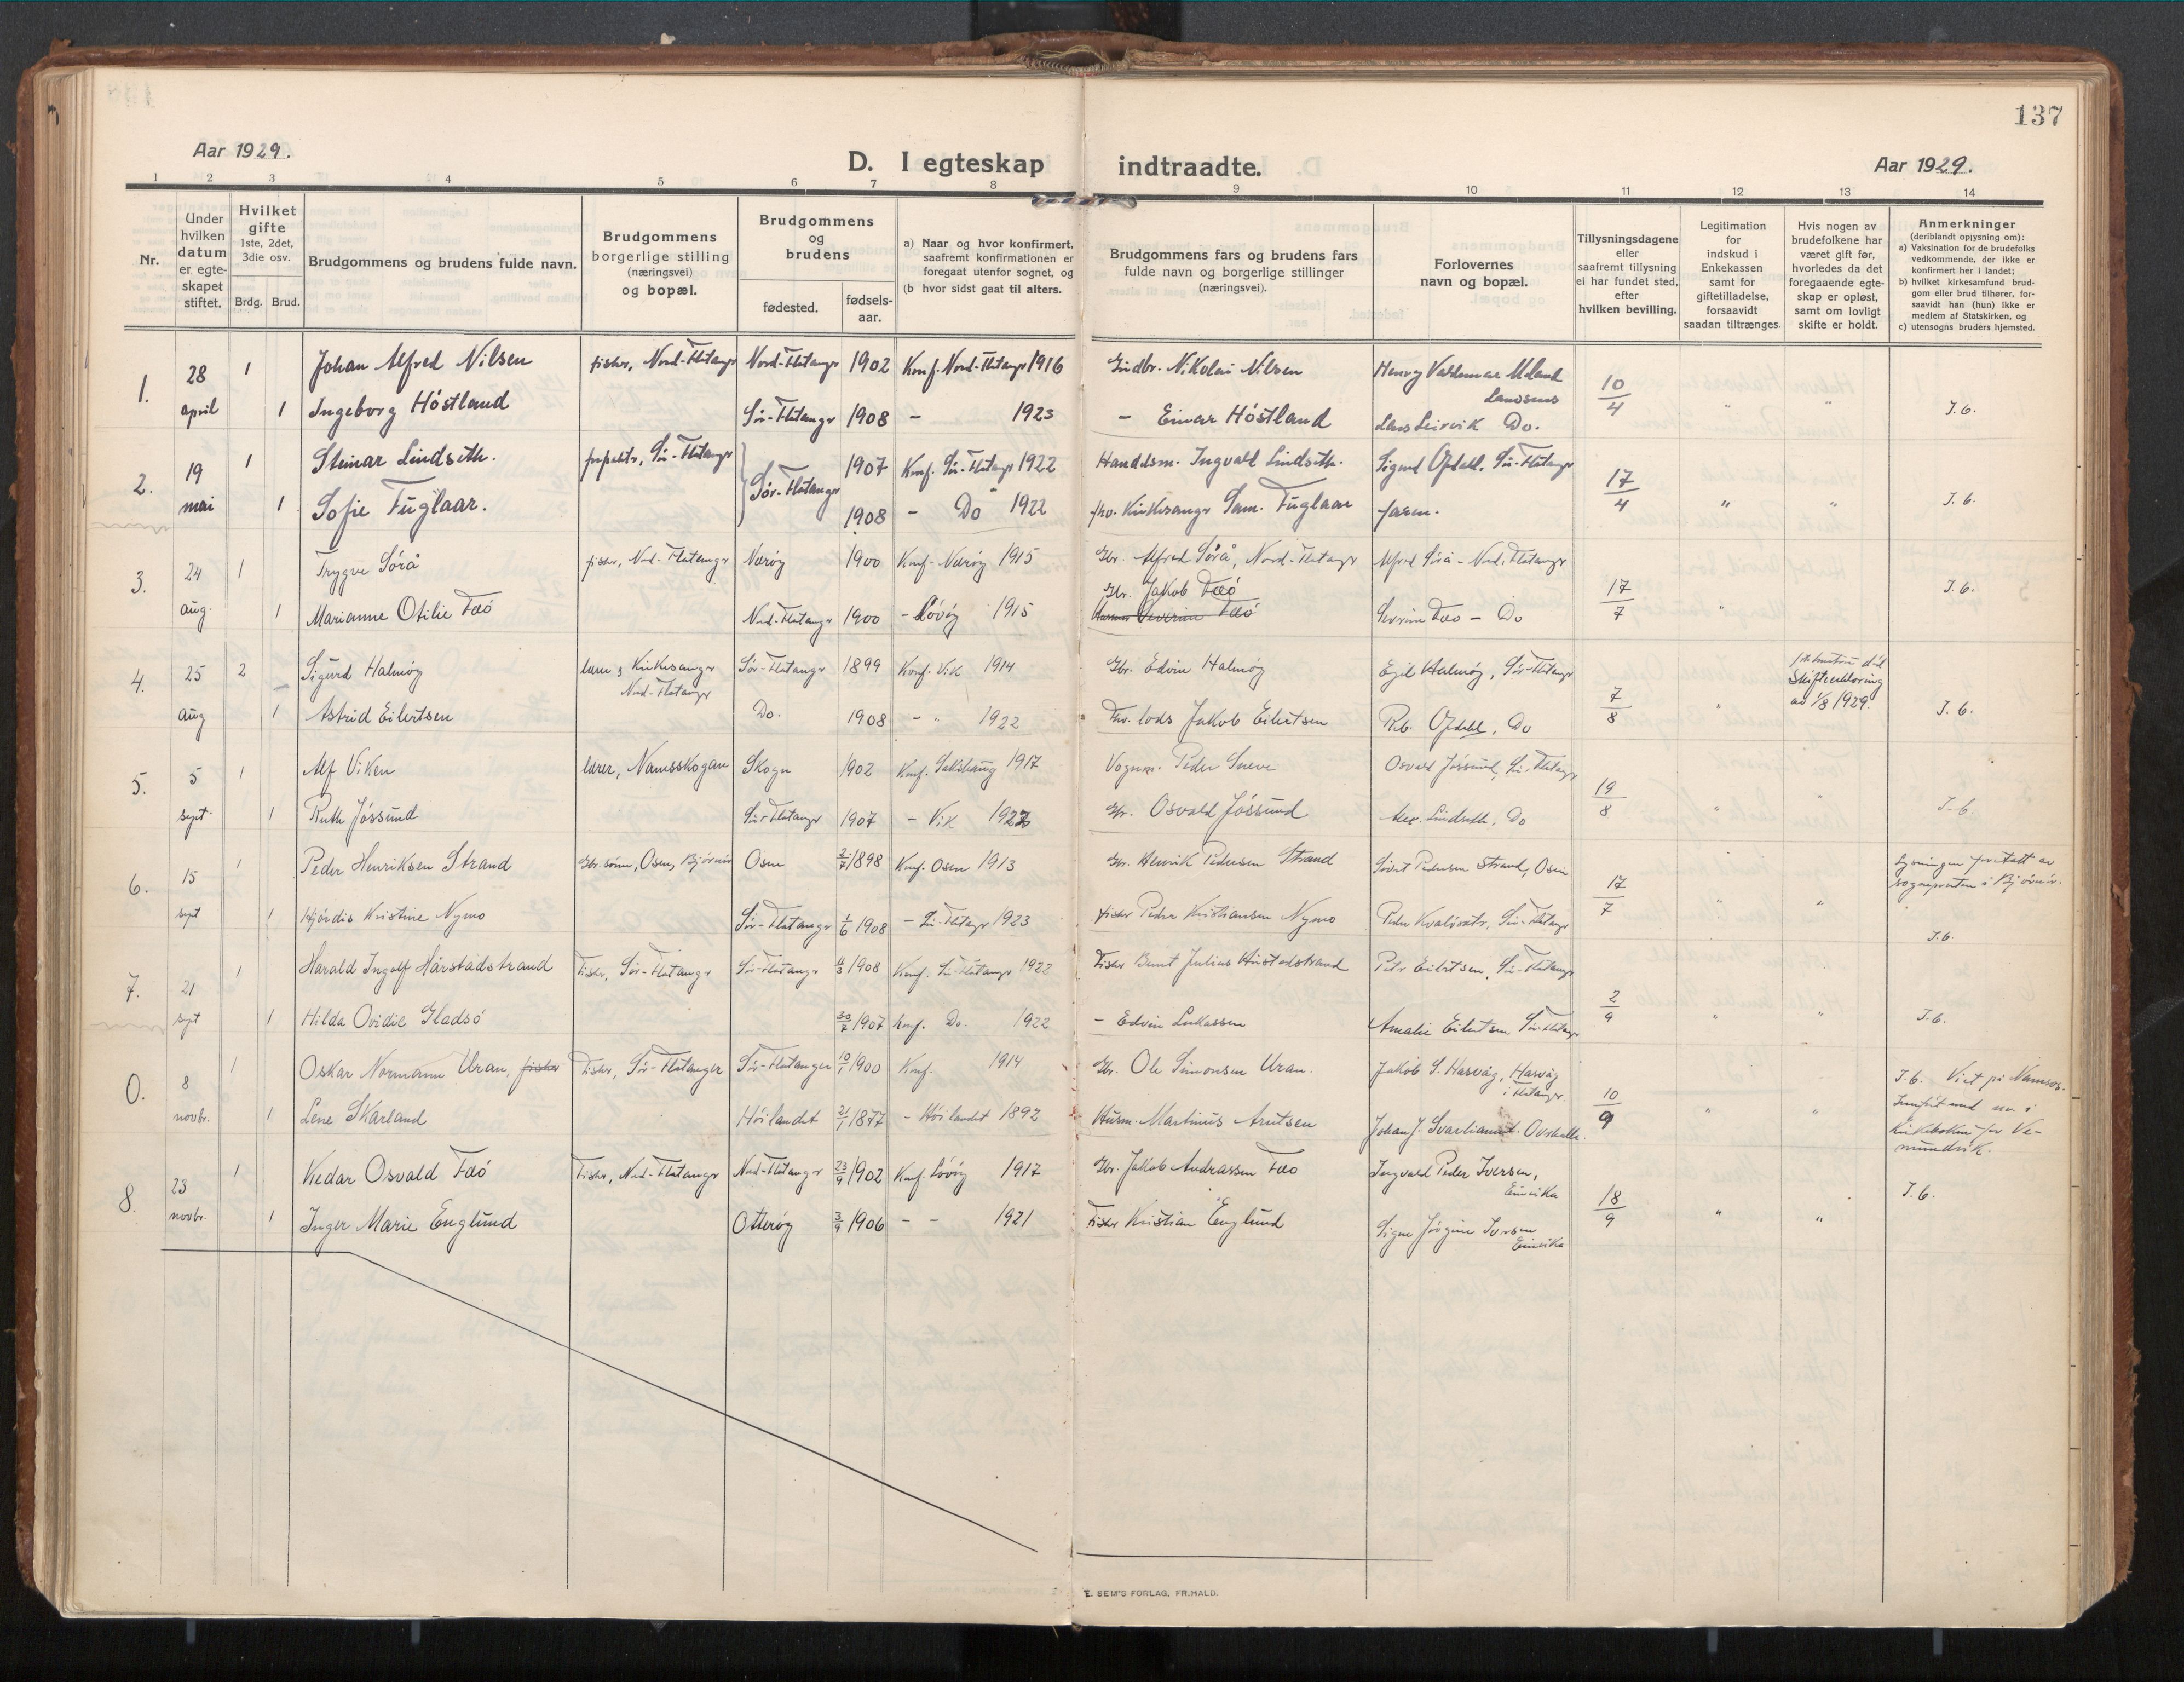 137
Aar 1929.
D. I egteskap indtraadte.
Aar 1929.
1 2 3 4 5 6 7 8 9 10 11 12 13 14
Nr.
Under hvilken datum er egte-skapet stiftet.
Hvilket gifte 1ste, 2det, 3die osv.
Brdg. Brud.
Brudgommens og brudens fulde navn.
Brudgommens borgerlige stilling (næringsvei) og bopæl.
Brudgommens og brudens
fødested.
fødsels-aar.
a) Naar og hvor konfirmert, saafremt konfirmationen er foregaat utenfor sognet, og
(b hvor sidst gaat til alters.
Brudgommens fars og brudens fars fulde navn og borgerlige stillinger (næringsvei).
Forlovernes navn og bopæl.
Tillysningsdagene eller saafremt tillysning ei har fundet sted, efter hvilken bevilling.
Legitimation for indskud i Enkekassen samt for giftetilladelse, forsaavidt saadan tiltrænges.
Hvis nogen av brudefolkene har været gift før, hvorledes da det foregaaende egte-skap er opløst, samt om lovligt skifte er holdt.
Anmerkninger
(deriblandt opjysning om):
a) Vaksination for de brudefolks vedkommende, der ikke er konfirmert her i landet;
b) hvilket kirkesamfund brud-gom eller brud tilhører, for-saavidt han (hun) ikke er medlem af Statskirken, og
c) utensogns bruders hjemsted.
1. 28 1 Johan Alfred Nilsen fisker, Nord-Flatanger Nord-Flatanger 1902 Konf. Nord-Flatanger 1916 Gårdbr. Nikolai Nilsen Henry Valdemar
10/4
april 1 Ingeborg Höstland Sör-Flatanger 1908 - 1923 - Einar Höstland Lars Leirvik Do. " " J. b.
2. 19 1 Steinar Lindseth. Sör-Flatanger 1907 Konf. Sör-Flatanger 1922 Handelsm. Ingvald Lindseth. Sigurd Opdahl, Sör-Flatanger
17/4
mai 1 Sofie Fuglaar. Sör-Flatanger 1908 - Do 1922 fhv. Kirkesanger Sam. Fuglaar faren. " " J. b.
3. 24 1 Trygve Sörå fisker, Nord-Flatanger Nærøy 1900 Konf. Nærøy 1915 Gbr. Alfred Sörå, Nord-Flatanger Alfred Sörå - Nord-Flatanger
17/7
Gbr. Jakob Faö J. b.
aug. 1 Marianne Otilie Faö Nord-Flatanger 1900 - Lövöy 1915 Severin Faö Severin Faö - Do "
4. 25 2 Sigurd Halmöy lærer & Kirkesanger Nord-Flatanger Sör-Flatanger 1899 Konf. Vik 1914 Gbr. Edvin Halmöy Egil Halmöy, Sör-Flatanger
1ste hustru död Skifteerklæring av 1/8 1929.
7/8
aug 1 Astrid Eilertsen Do. 1908 - " 1922 Fhv. lods Jakob Eilertsen Opdahl, Do " J. b.
5. 5 1 Alf Viken lærer, Namsskogan Skogn 1902 Konf. 1917 Vognm. Peder Sneve Osvald Jössund, Sör-Flatanger
19/8
sept. 1 Ruth Jössund Sör-Flatanger 1907 - Vik 1922 Gbr. Osvald Jössund Alex. Lindseth, Do " " J. b.
6. 15 1 Peder Henriksen Strand Gbr. sönn, Osen, Björnör Osen 2/7 1898 Konf. Osen 1913 Gbr. Henrik Pedersen Strand Sivert Pedersen Strand, Osen
17/7
Lysningen foretatt av sognepresten i Björnör.
sept 1 Hjördis Kristine Nymo Sör-Flatanger 1/6 1908 - Sör-Flatanger 1923 fisker Peder Kristiansen Nymo Peder Kvalösæter, Sör-Flatanger " " J. b.
7. 21 1 Harald Ingolf Hårstadstrand Fisker, Sör-Flatanger Sör-Flatanger 1908 Konf. Sör-Flatanger 1922 Fisker Bernt Julius Hårstadstrand Peter Eilertsen, Sör-Flatanger
2/9
sept 1 Hilda Ovidie Gladsö 30/7 1907 Konf. Do. 1922 - Edvin Lukassen Amalie Eilertsen Sör-Flatanger " " J. b.
0. 8 1 Oskar Normann Uran, fisker Fisker, Sör-Flatanger Sör-Flatanger 10/1 1900 Konf. 1914 Gbr. Ole Simonsen Uran. Jakob S. Hasvåg, Hasvåg i Flatanger.
10/9
J. b. Viet på Namsos. Innfört med nr. i Kirkeboken for Ve-mundvik.
novbr. 1 Lene Skarland Höilandet 21/1 1877 - Höilandet 1892 Husm. Martinus Arntsen Johan J. Svarliamot. Overhalla. " "
8. 23 1 Kedar Osvald Faö Fisker, Nord-Flatanger Nord-Flatanger 23/9 1902 Konf. Lövöy 1917 Gbr. Jakob Andreassen Faö Ingvald Peder Iversen, Einvika
18/9
J. b.
novbr. 1 Inger Marie Englund Otteröy 3/9 1906 - - 1921 Fisker Kristian Englund Signe Jörgine Iversen Einvika " "
E. SEM'S FORLAG, FR.HALD.